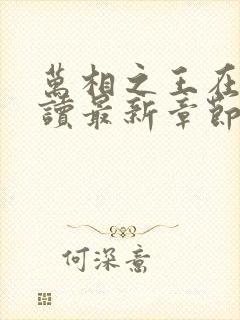 萬相之王在
讀最新章節
何深喬